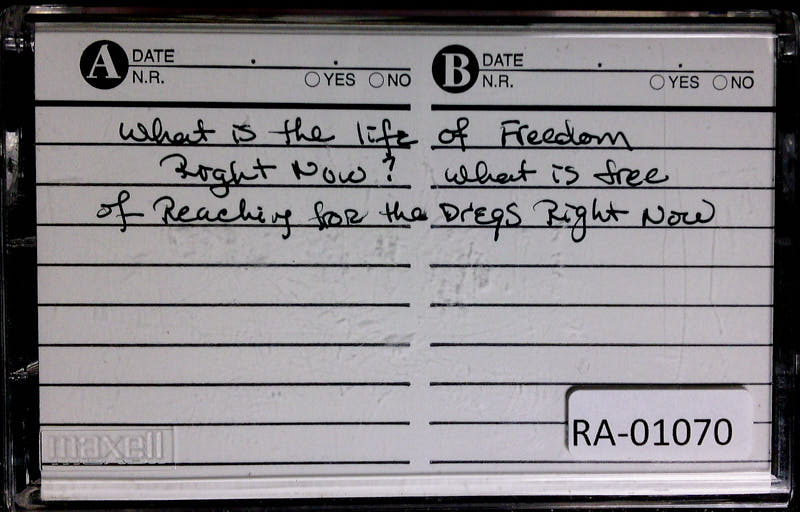 A DATE . . B DATE . .
N.R. ○YES ○NO N.R. ○YES ○NO
What is the life of Freedom
Right Now? What is free
of Reaching for the Dregs Right Now
maxell
RA-01070